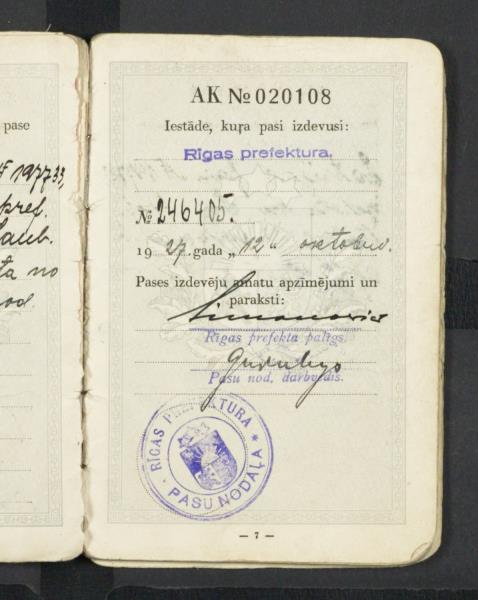 pase
№ 197733,
pref.
no
nod.
AK № 020108
Iestāde, kuŗa pasi izdevusi:
Rīgas prefektura.
№ 246405.
19 27. gada „ 12 " oktobrī.
Pases izdevēju amatu apzīmējumi un
paraksti:
Rīgas prefekta palīgs.
Pasu nod. darbvedis.
RĪGAS PREFEKTURA * PASU NODAĻA *
— 7 —